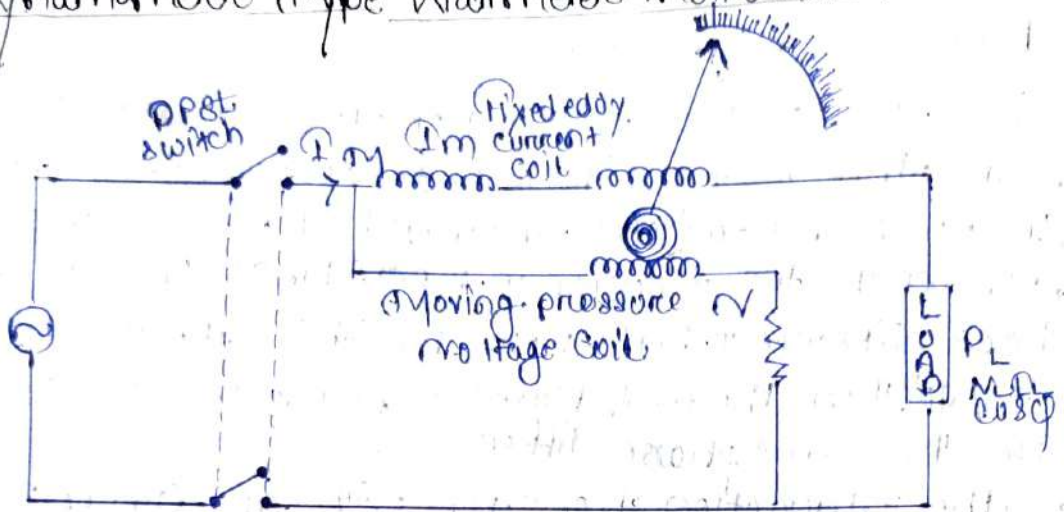 Type
DPST
switch
I
Im
Fixed eddy
current
coil
Moving pressure
Voltage coil
LOAD
PL
cosφ